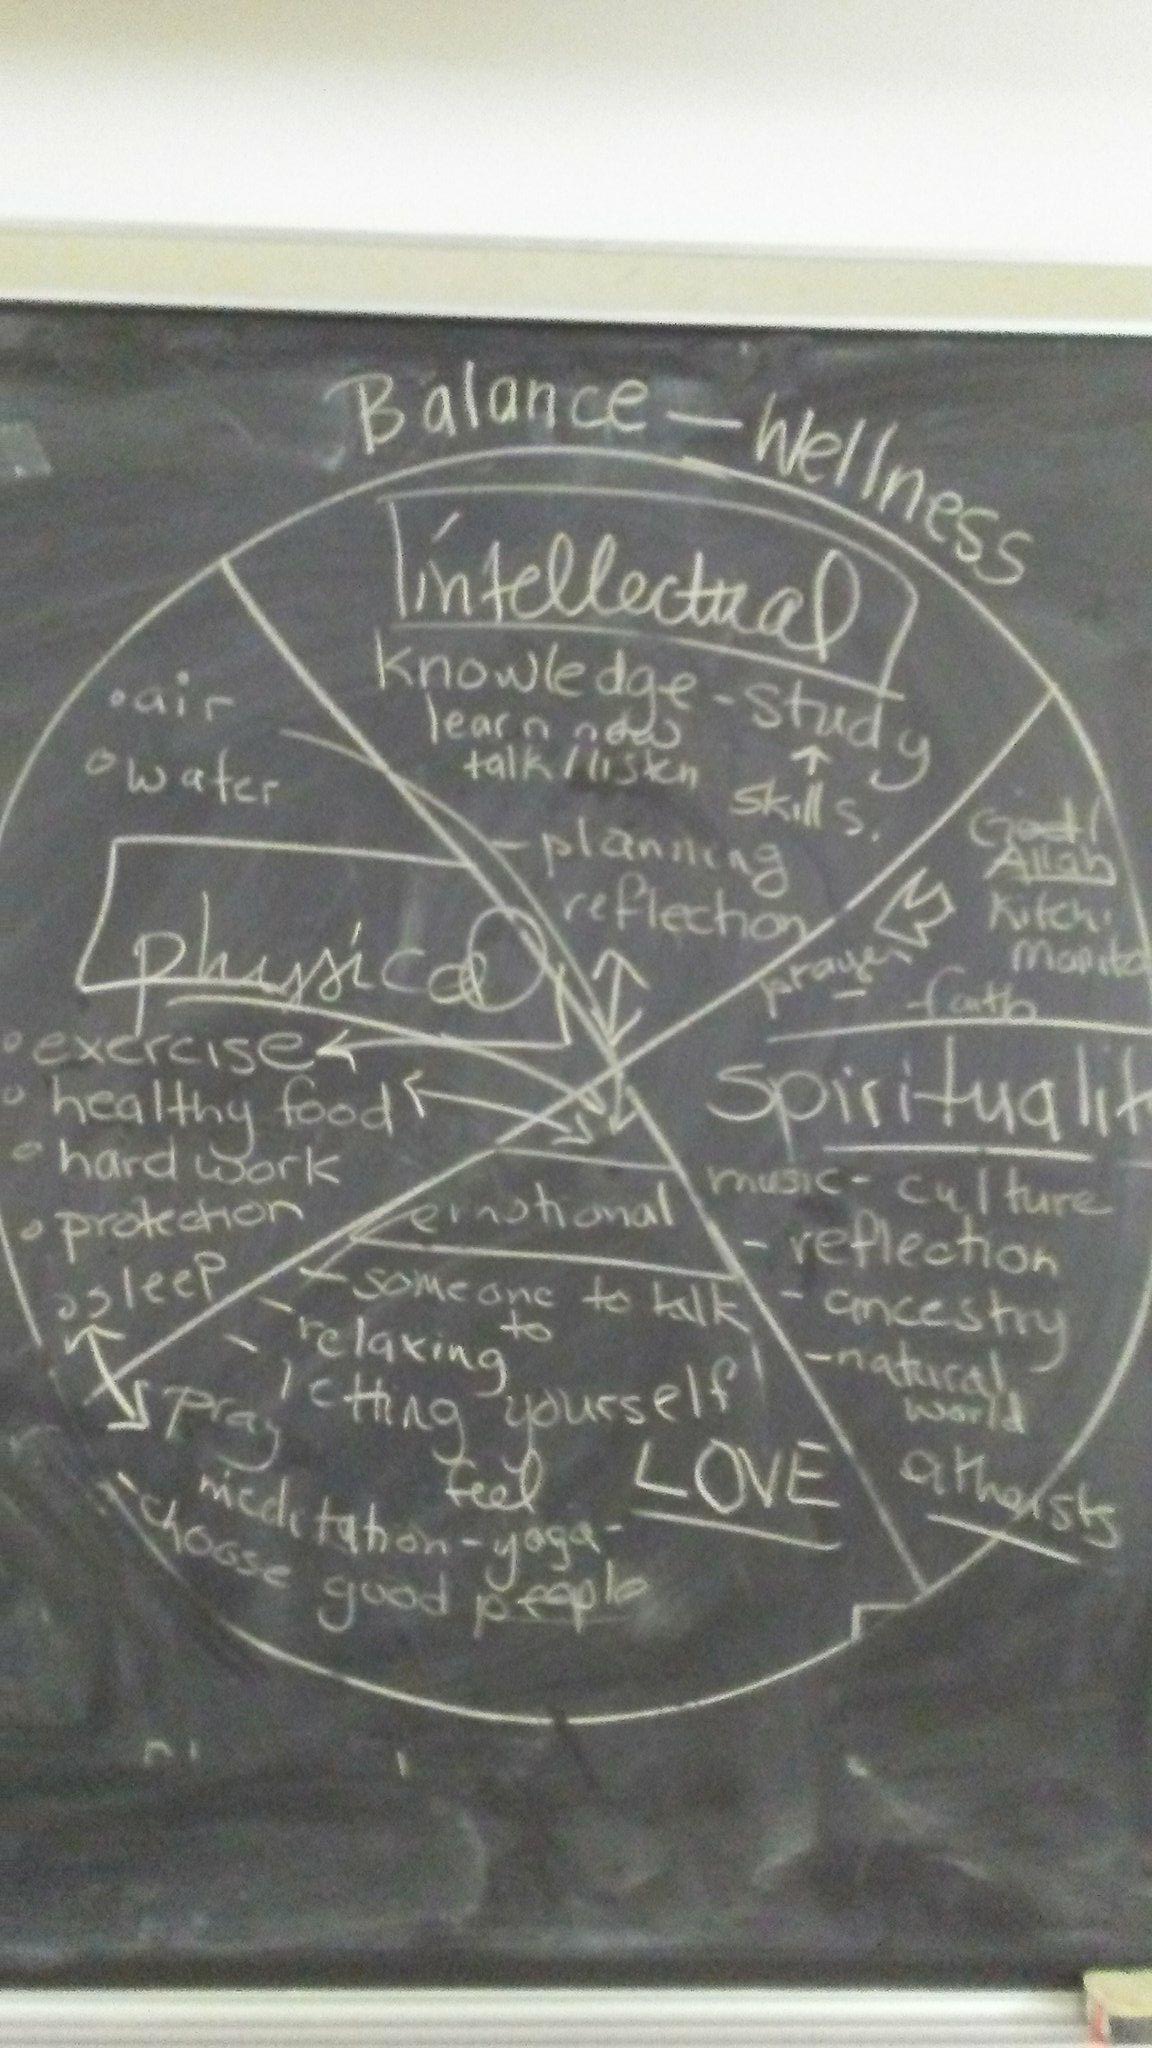 Balance - Wellness
Intellectual
knowledge - study
learn new
talk/listen
skills.
- planning
reflection
• air
• water
physical
• exercise
• healthy food
• hard work
• protection
• sleep
God/
Allah
Kitchi
prayer
- faith
music - culture
- reflection
- ancestry
- natural
world
emotional
- someone to talk
to
- relaxing
- letting yourself
feel
pray
meditation - yoga -
LOVE
- choose good people